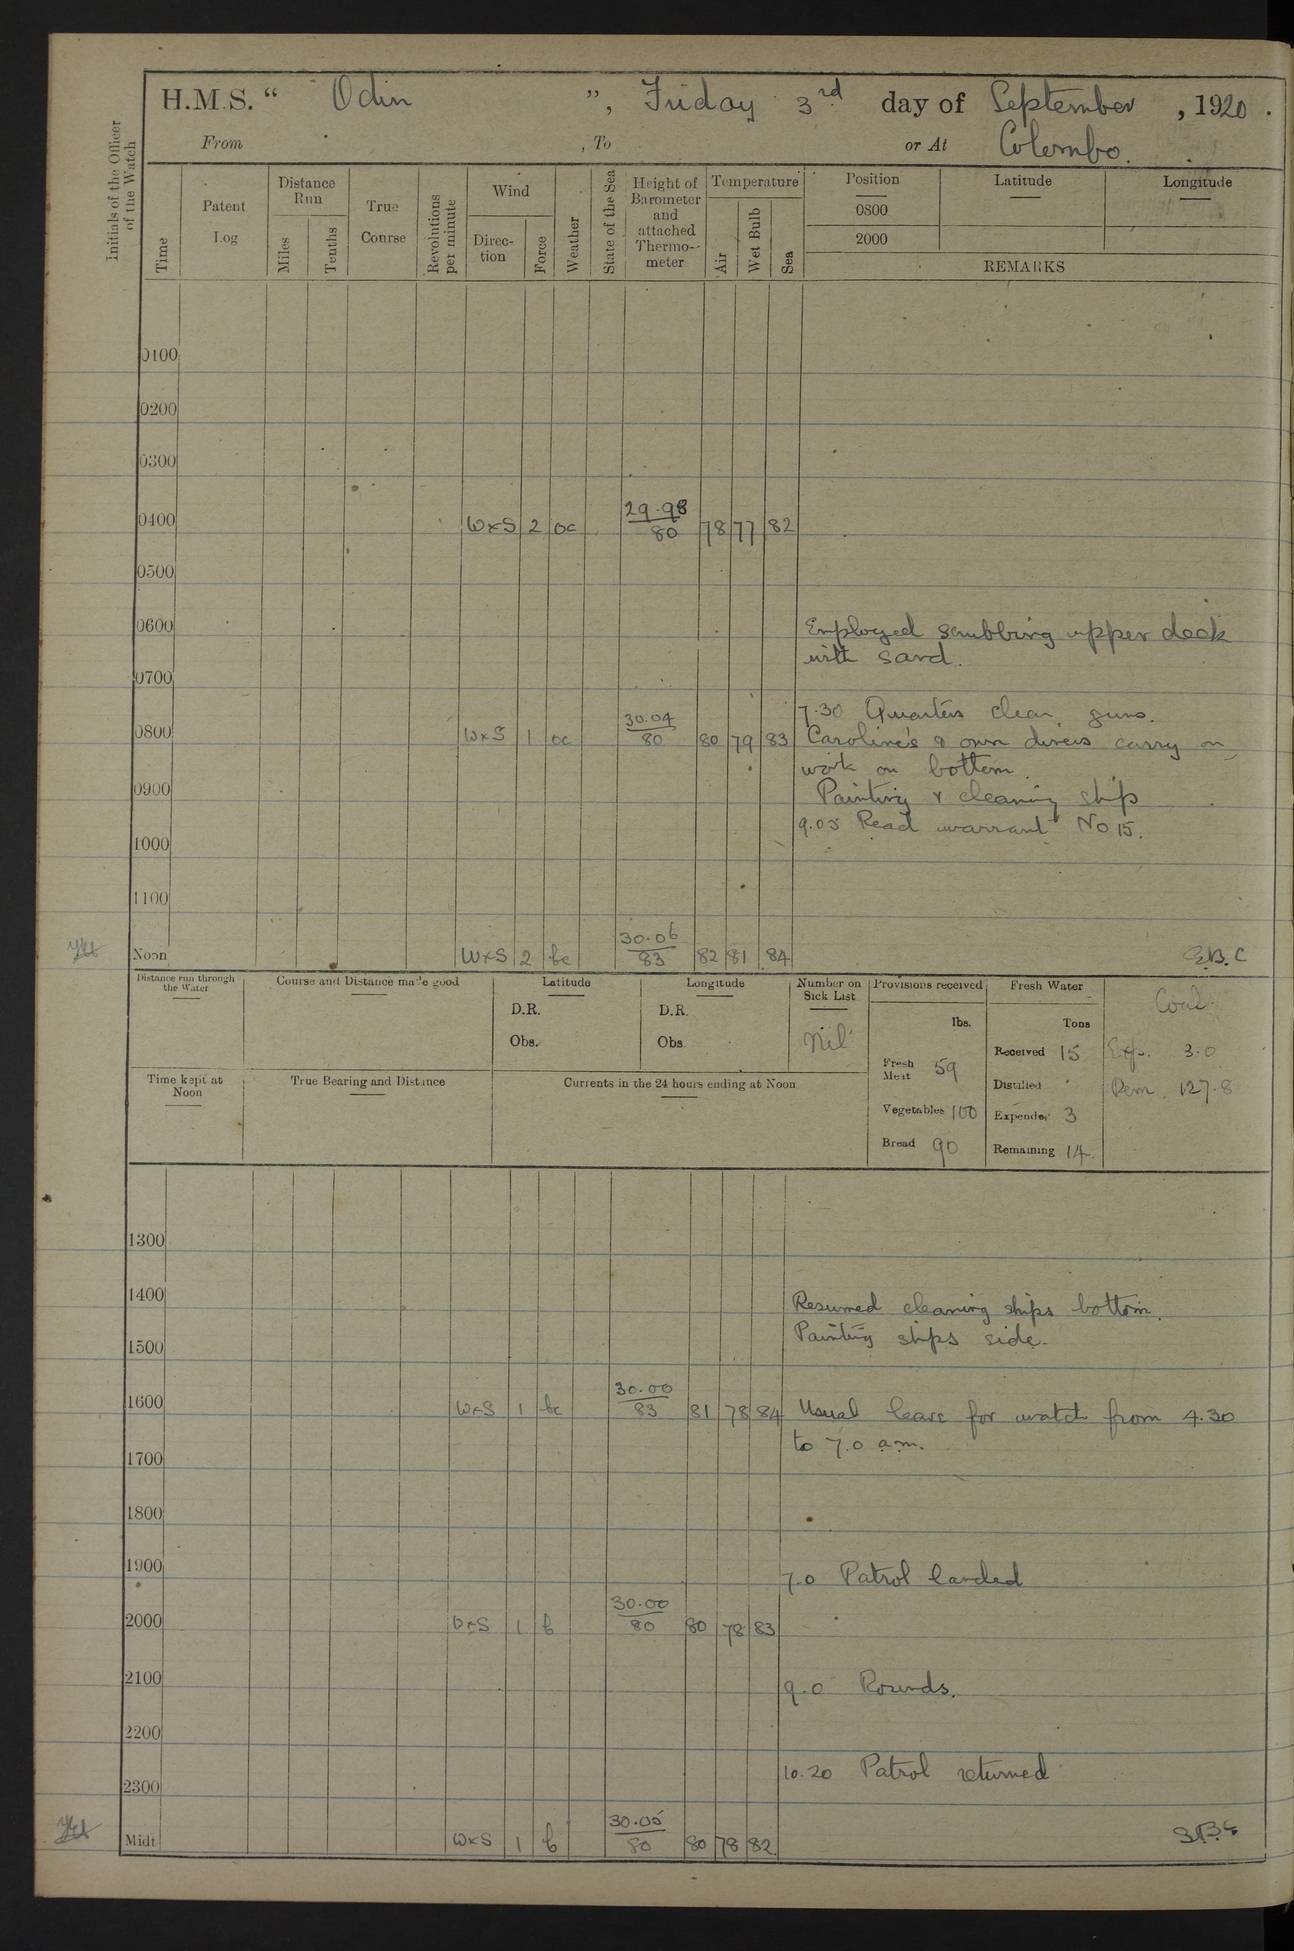 H.M.S. “ Odin ”, Friday 3rd day of September, 1920.
From , To or At Colombo.
Initials of the Officer of the Watch
Time
Patent Log
Distance Run
Miles
Tenths
True Course
Revolutions per minute
Wind
Direc-tion
Force
Weather
State of the Sea
Height of Barometer and attached Thermo-meter
Temperature
Air
Wet Bulb
Sea
Position Latitude Longitude
0800
2000
REMARKS
0100
0200
0300
0400 WxS 2 oc 29.98/80 78 77 82
0500
0600 Employed scrubbing upper deck
with sand.
0700
7.30 Quarters clean guns.
0800 WxS 1 oc 30.04/80 80 79 83 Caroline's & own divers carry on
work on bottom.
0900 Painting & cleaning ship
9.05 Read warrant No 15.
1000
1100
Noon WxS 2 bc 30.06/83 82 81 84 E.B.C
Distance run through the Water
Course and Distance made good
Latitude
D.R.
Obs.
Longitude
D.R.
Obs.
Number on Sick List
Nil
Provisions received
lbs.
Fresh Meat 59
Vegetables 100
Bread 90
Fresh Water
Tons
Received 15
Distilled
Expended 3
Remaining 14
Coal
Exp. 3.0
Rem. 127.8
Time kept at Noon
True Bearing and Distance
Currents in the 24 hours ending at Noon
1300
1400 Resumed cleaning ships bottom.
Painting ships side.
1500
1600 WxS 1 bc 30.00/83 81 78 84 Usual leave for watch from 4.30
to 7.0 a.m.
1700
1800
1900 7.0 Patrol landed
2000 WxS 1 b 30.00/80 80 78 83
2100 9.0 Rounds.
2200
10.20 Patrol returned
2300
Midt WxS 1 b 30.05/80 80 78 82 E.B.C